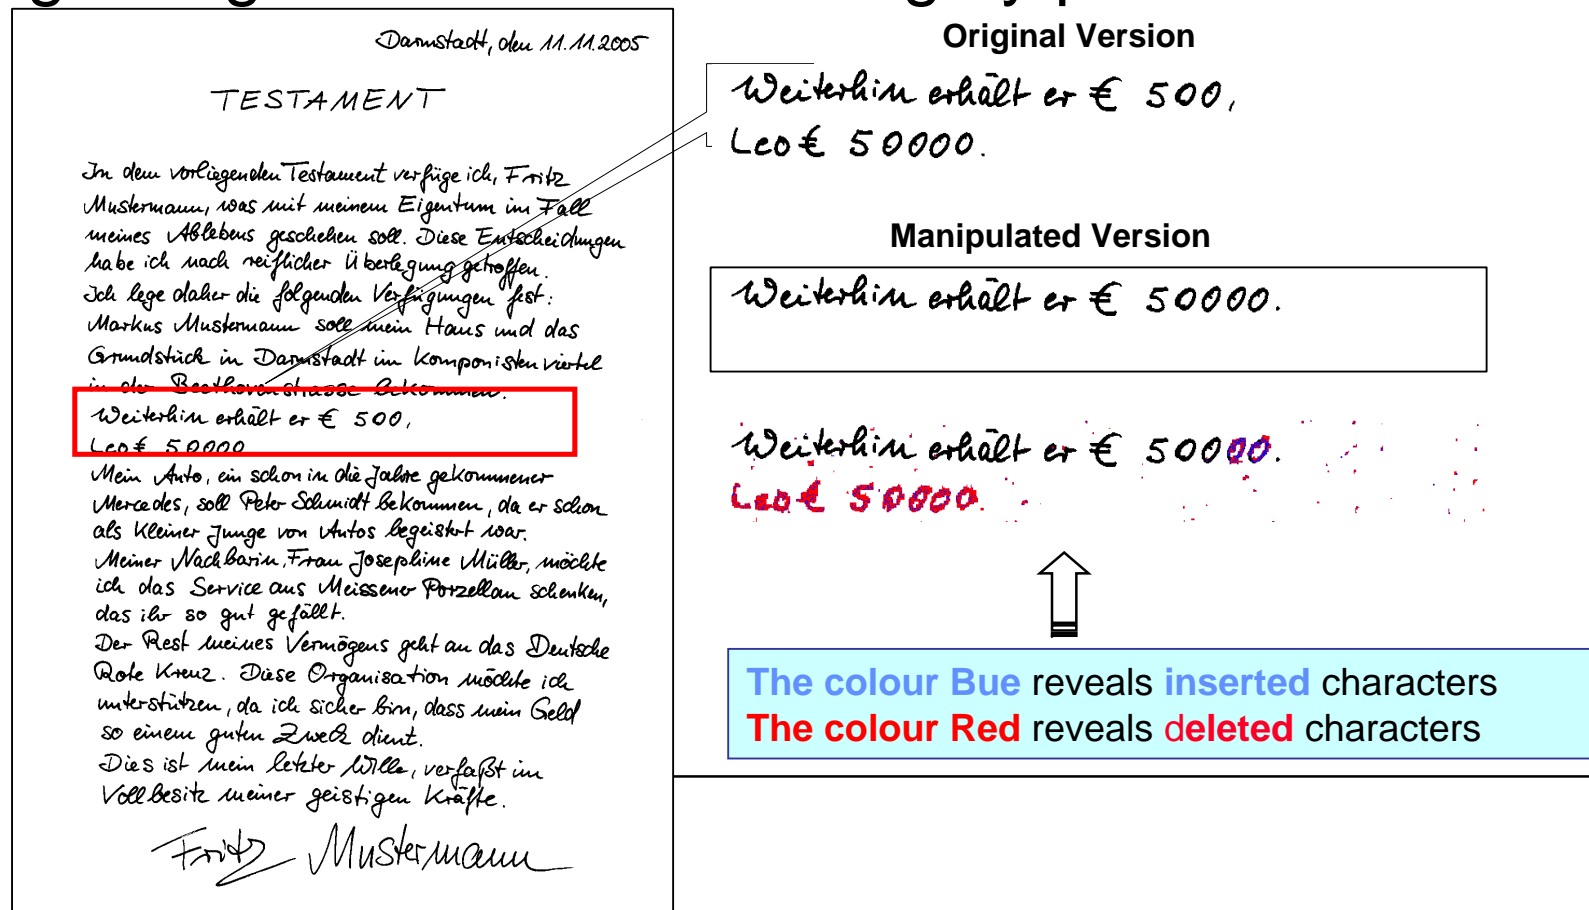 Darmstadt, den 11.11.2005
TESTAMENT
In dem vorliegenden Testament verfüge ich, Fritz
Mustermann, was mit meinem Eigentum im Fall
meines Ablebens geschehen soll. Diese Entscheidungen
habe ich nach reiflicher Überlegung getroffen.
Ich lege daher die folgenden Verfügungen fest:
Markus Mustermann soll mein Haus und das
Grundstück in Darmstadt im Komponistenviertel
in der Beethovenstrasse bekommen.
Weiterhin erhält er € 500,
Leo € 50000
Mein Auto, ein schon in die Jahre gekommener
Mercedes, soll Peter Schmidt bekommen, da er schon
als kleiner Junge von Autos begeistert war.
Meiner Nachbarin, Frau Josephine Müller, möchte
ich das Service aus Meissener Porzellan schenken,
das ihr so gut gefällt.
Der Rest meines Vermögens geht an das Deutsche
Rote Kreuz. Diese Organisation möchte ich
unterstützen, da ich sicher bin, dass mein Geld
so einem guten Zweck dient.
Dies ist mein letzter Wille, verfaßt im
Vollbesitz meiner geistigen Kräfte.
Fritz Mustermann
Original Version
Weiterhin erhält er € 500,
Leo € 50000.
Manipulated Version
Weiterhin erhält er € 50000.
Weiterhin erhält er € 50000.
Leo € 50000.
The colour Bue reveals inserted characters
The colour Red reveals deleted characters